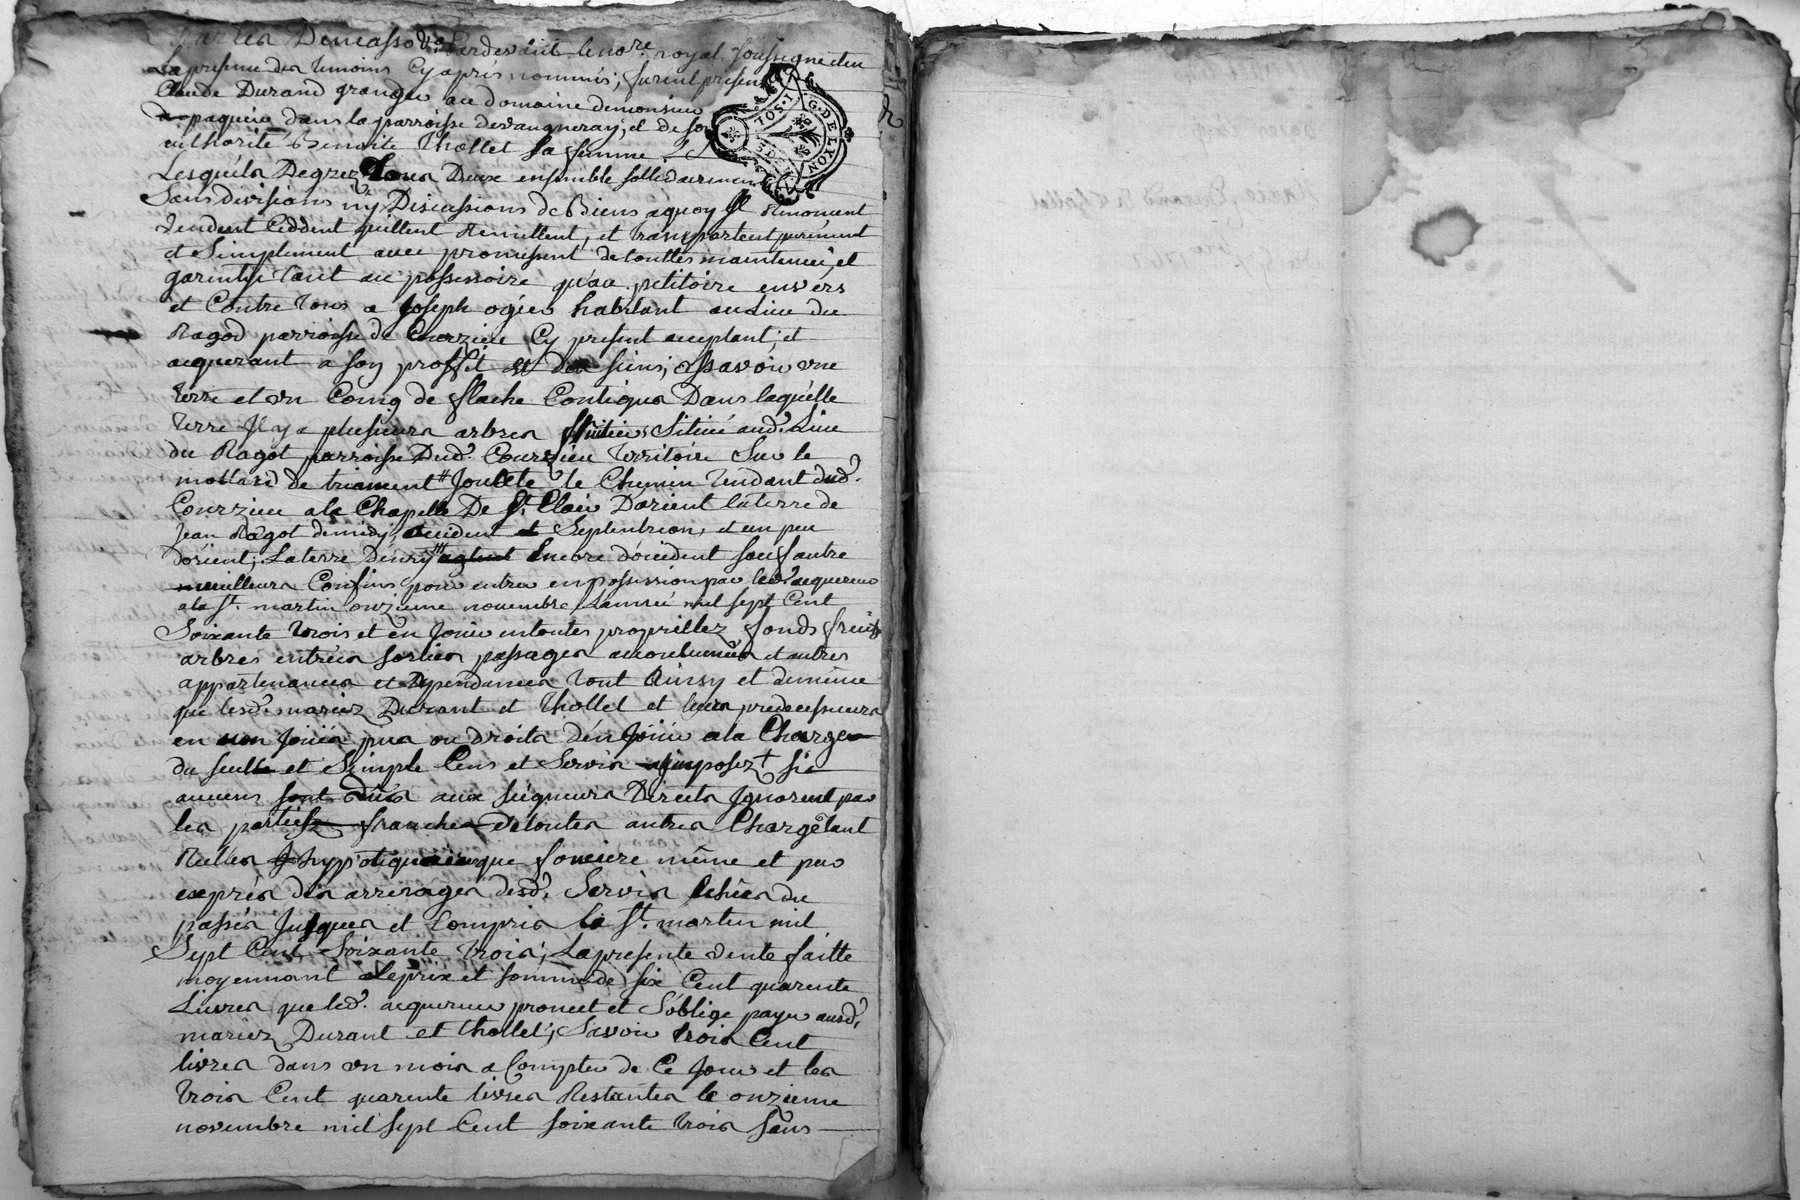 Pardevant le no.re royal soussigné et en
la presence des temoins cy aprés nommés; furent presents
Claude Durand granger au domaine de monsieur
paquier dans la parroisse de vaugneray; et de son
authorité Benoite Thollet sa femme.
Lesquéls Degrez Tous Deux ensemble sollidairement
Sans divisions ny Discussions de Biens aquoy Il Renoncent
Vendent Ceddent quittent Remettent, et transportent purément
et Simplement avec promessent de touttes maintenüe, et
garentye tant au possessoire qu'au petitoire envers
et Contre tous a Joseph ogier habitant au Lieu du
Ragod parroisse de Courzieu Cy present acceptant; et
acquerant a son proffit et des siens; assavoir une
terre et un Coing de flache Contigus Dans laquélle
terre Il y a plusieurs arbres fruitiers Situé aud. Lieu
du Ragot parroisse Dud. Courzieu territoire Sur le
mollard de triament # Joucte le Chemin tendant dud.
Courzieu a la Chapelle De St. Clair D'orient la terre de
Jean Ragot de midy, occident et Septentrion, et un peu
d'orient; La terre Encore d'occident sauf autre
meilleurs Confins, pour entrer en possession par led. acquereur
a la St. martin onzieme novembre L'année mil sept Cent
Soixante trois et en Jouir en toutes propriétéz fonds fruits
arbres entrées sorties passages accoutumées et autres
appartenances et Dépendances tout Ainsy et de même
que lesd. mariez Durant et Thollet et leurs predecesseurs
en on Joüis pus ou droits d'én Joüir a la Charge
du seulle et Simple Cens et Servis a Imposez † si
aucuns sont dûs aux seigneurs Directs Ignorent par
les parties franche de toutes autres Charge tant
Reélles hyppotiquaire que fonciere même et par
exprés des arrerages desd. Servis échûs du
passés Jusques et Compris la St. martin mil
Sept Cent Soixante trois; La presente vente faitte
moyennant le prix et somme de six Cent quarente
Livres que led. acquereur promet et S'oblige payer ausd.
mariez Durant et Thollet; Savoir trois Cent
livres dans un mois a Compter de Ce Jour et les
trois Cent quarente livres Restantes le onzieme
novembre mil sept Cent soixante trois sans
G. DE LYON
I. SOL